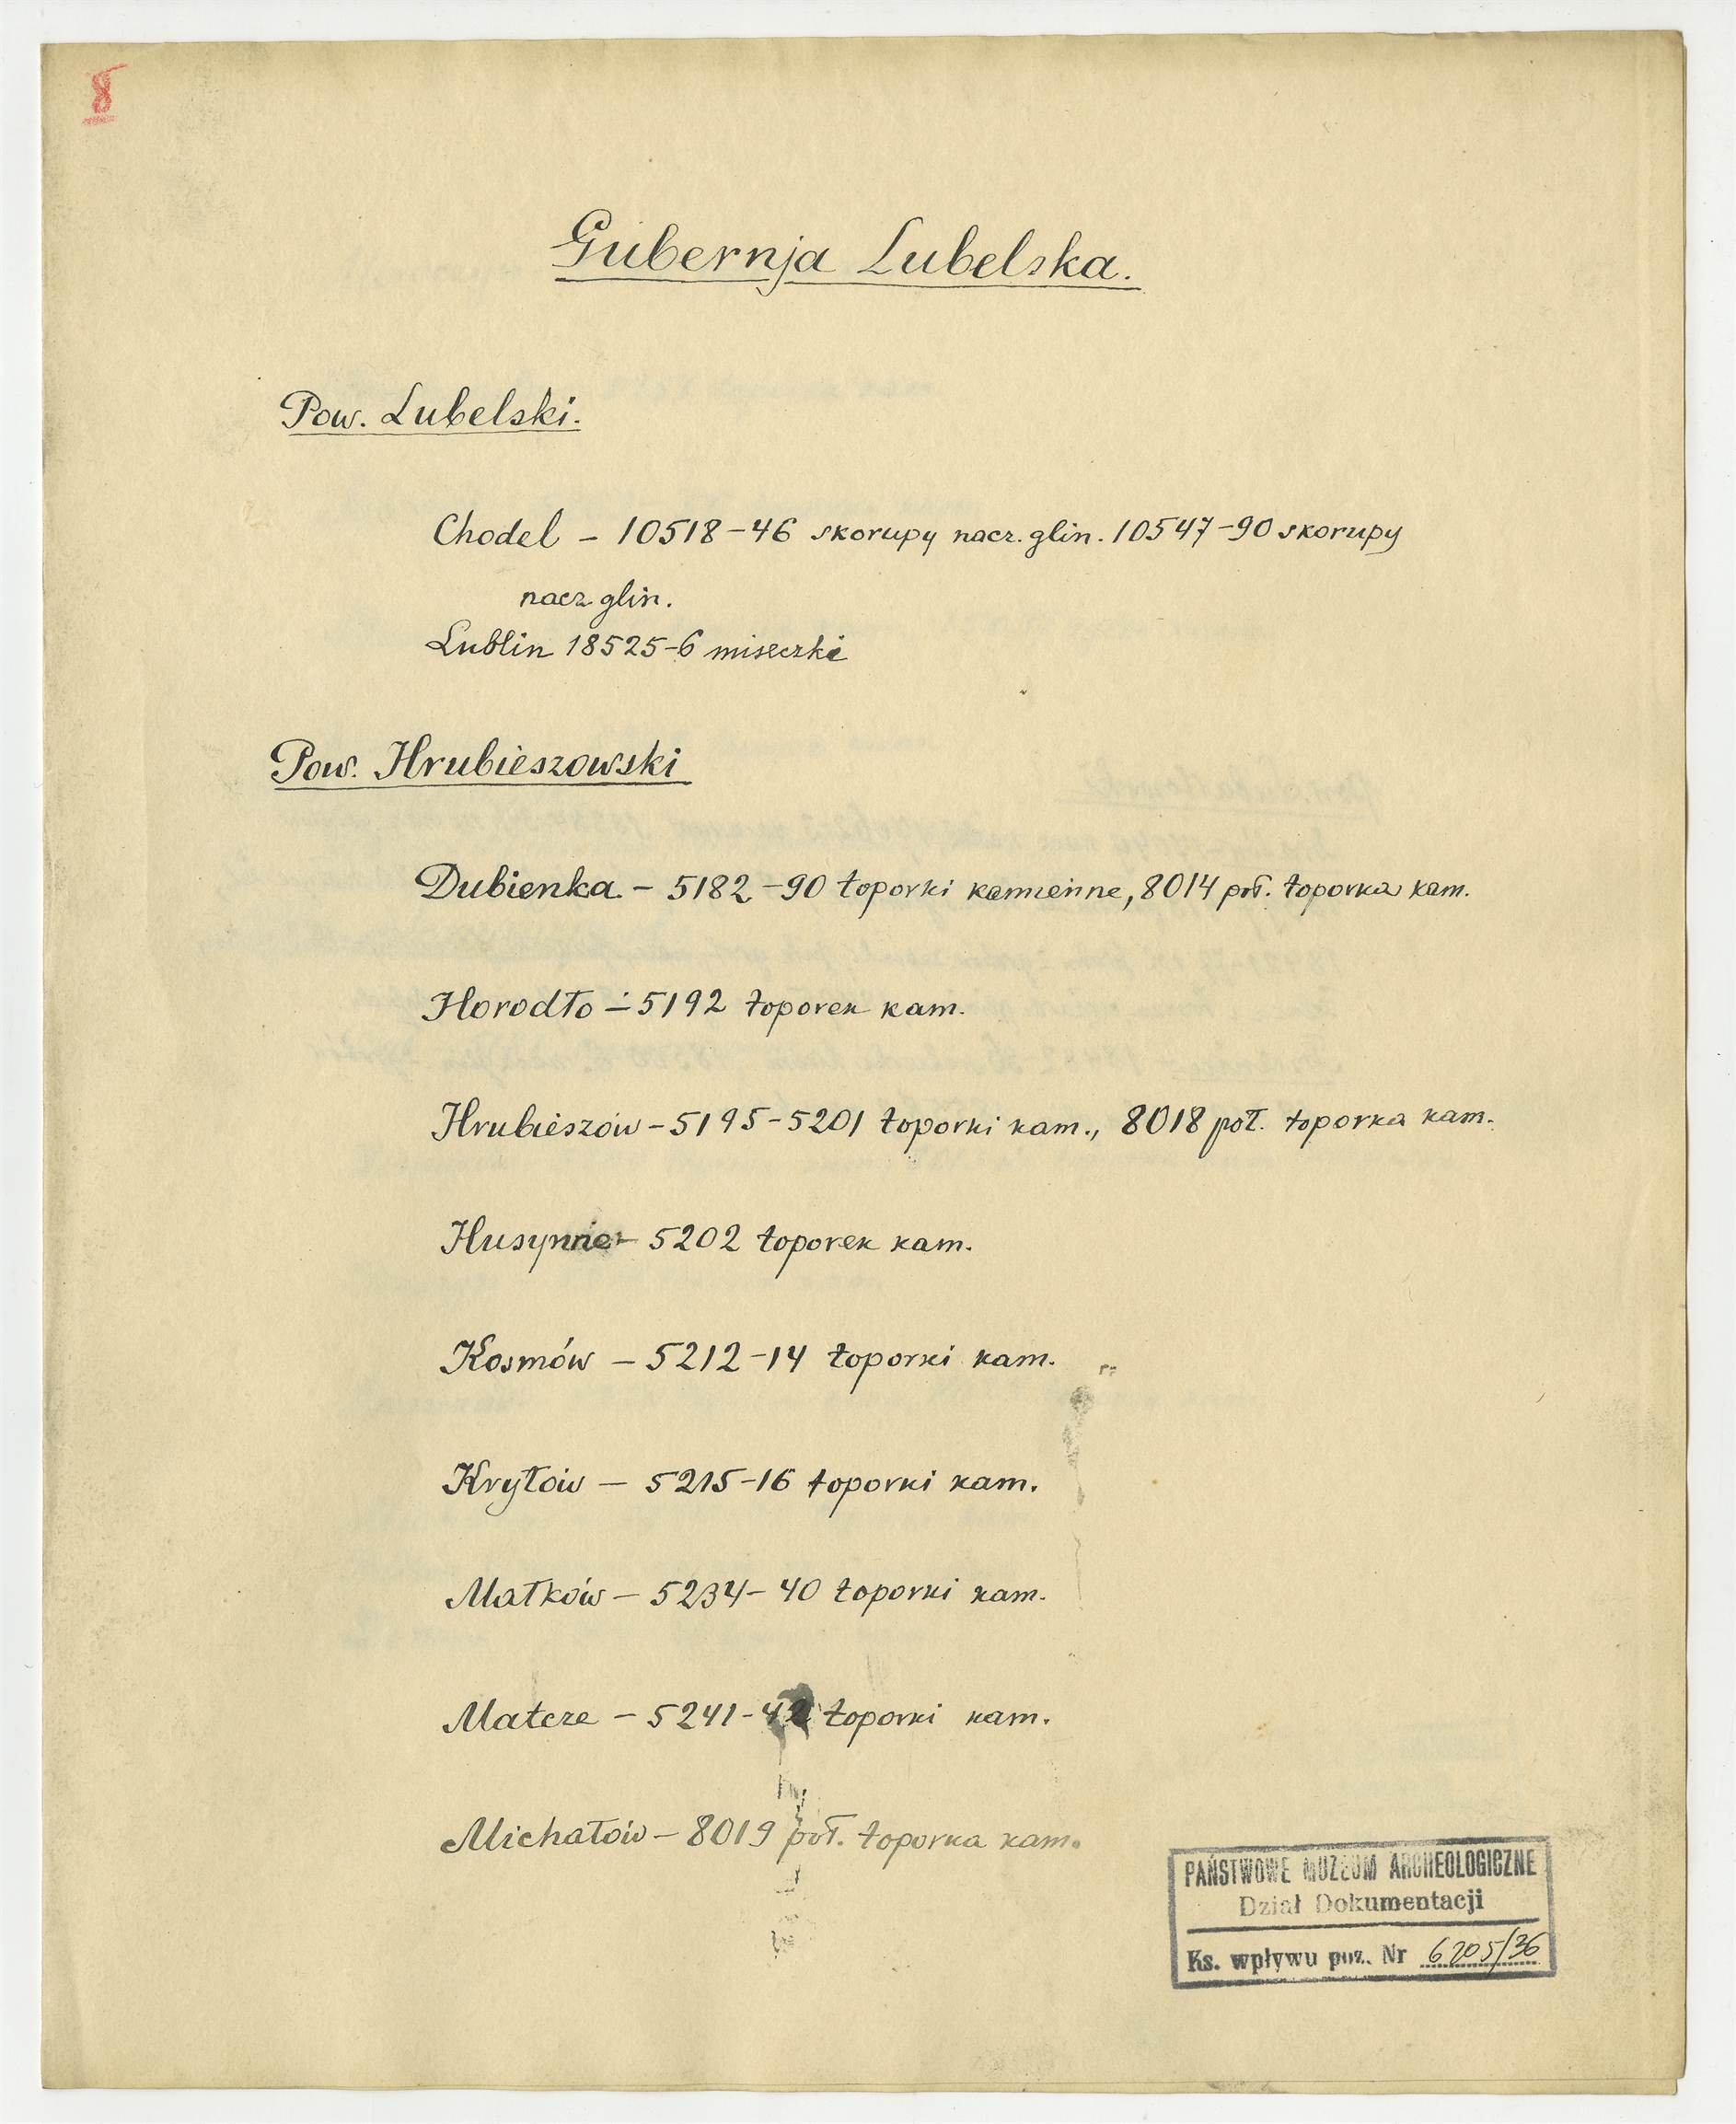 8
Gubernja Lubelska.
Pow. Lubelski.
Chodel – 10518–46 skorupy nacz. glin. 10547–90 skorupy
nacz glin.
Lublin 18525–6 miseczki
Pow. Hrubieszowski
Dubienka – 5182–90 toporki kamienne, 8014 poł. toporka kam.
Horodło – 5192 toporek kam.
Hrubieszów – 5195–5201 toporki kam., 8018 poł. toporka kam.
Husynne – 5202 toporek kam.
Kosmów – 5212–14 toporki kam.
Kryłów – 5215–16 toporki kam.
Małków – 5234–40 toporki kam.
Matcze – 5241–42 toporki kam.
Michałów – 8019 poł. toporka kam.
PAŃSTWOWE MUZEUM ARCHEOLOGICZNE
Dział Dokumentacji
Ks. wpływu poz. Nr 6205/36